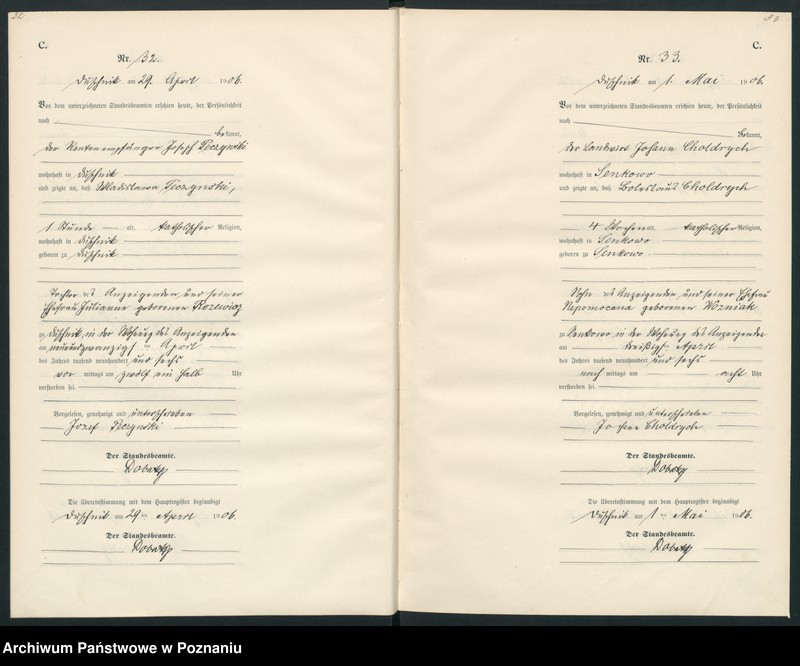 32
C.
Nr. 32.
Duschnik am 29. April 1906.
Vor dem unterzeichneten Standesbeamten erschien heute, der Persönlichkeit
nach
bekannt,
der Rentenempfänger Joseph Peczynski
wohnhaft in Duschnik
und zeigte an, daß Wladislawa Peczynski,
1 Stunde alt, katholischer Religion,
wohnhaft in Duschnik
geboren zu Duschnik
Tochter des Anzeigenden und seiner
Ehefrau Julianna geborenen
zu Duschnik in der Wohnung des Anzeigenden
am neunundzwanzigsten April
des Jahres tausend neunhundert und sechs
vor mittags um zwölf ein halb Uhr
verstorben sei.
Vorgelesen, genehmigt und unterschrieben
Jozef Peczynski
Der Standesbeamte.
Die Übereinstimmung mit dem Hauptregister beglaubigt
Duschnik am 29ten April 1906.
Der Standesbeamte.
33
C.
Nr. 33.
Duschnik am 1. Mai 1906.
Vor dem unterzeichneten Standesbeamten erschien heute, der Persönlichkeit
nach
bekannt,
der Landwirt Johann Choldrych
wohnhaft in Senkowo
und zeigte an, daß Boleslaus Choldrych
4 Wochen alt, katholischer Religion,
wohnhaft in Senkowo
geboren zu Senkowo
Sohn des Anzeigenden und seiner Ehefrau
Nepomocena geborenen Wozniak
zu Senkowo in der Wohnung des Anzeigenden
am dreißigsten April
des Jahres tausend neunhundert und sechs
nach mittags um acht Uhr
verstorben sei.
Vorgelesen, genehmigt und unterschrieben
Johann Choldrych
Der Standesbeamte.
Die Übereinstimmung mit dem Hauptregister beglaubigt
Duschnik am 1ten Mai 1906.
Der Standesbeamte.
Archiwum Państwowe w Poznaniu